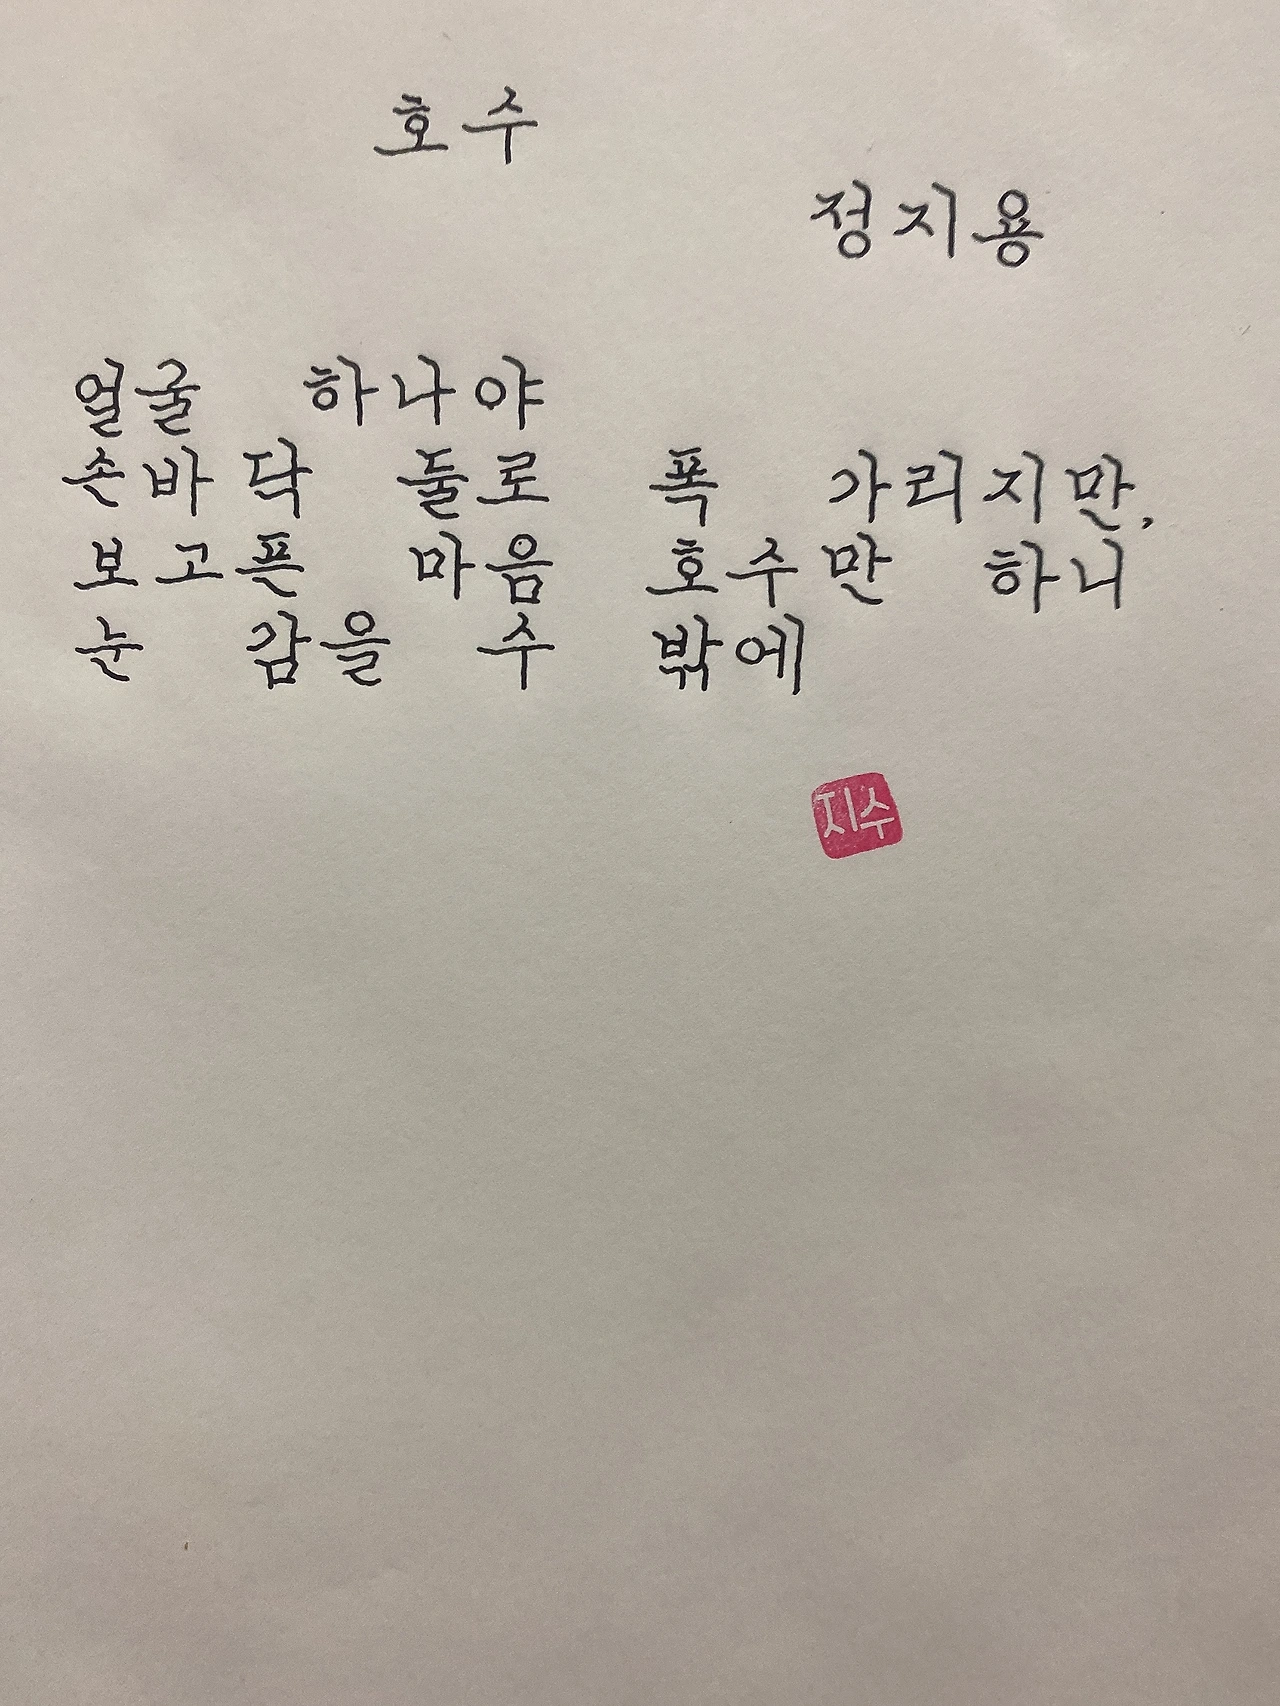 호수
정지용
얼굴 하나야
손바닥 둘로 폭 가리지만,
보고픈 마음 호수만 하니
눈 감을 수 밖에
지수